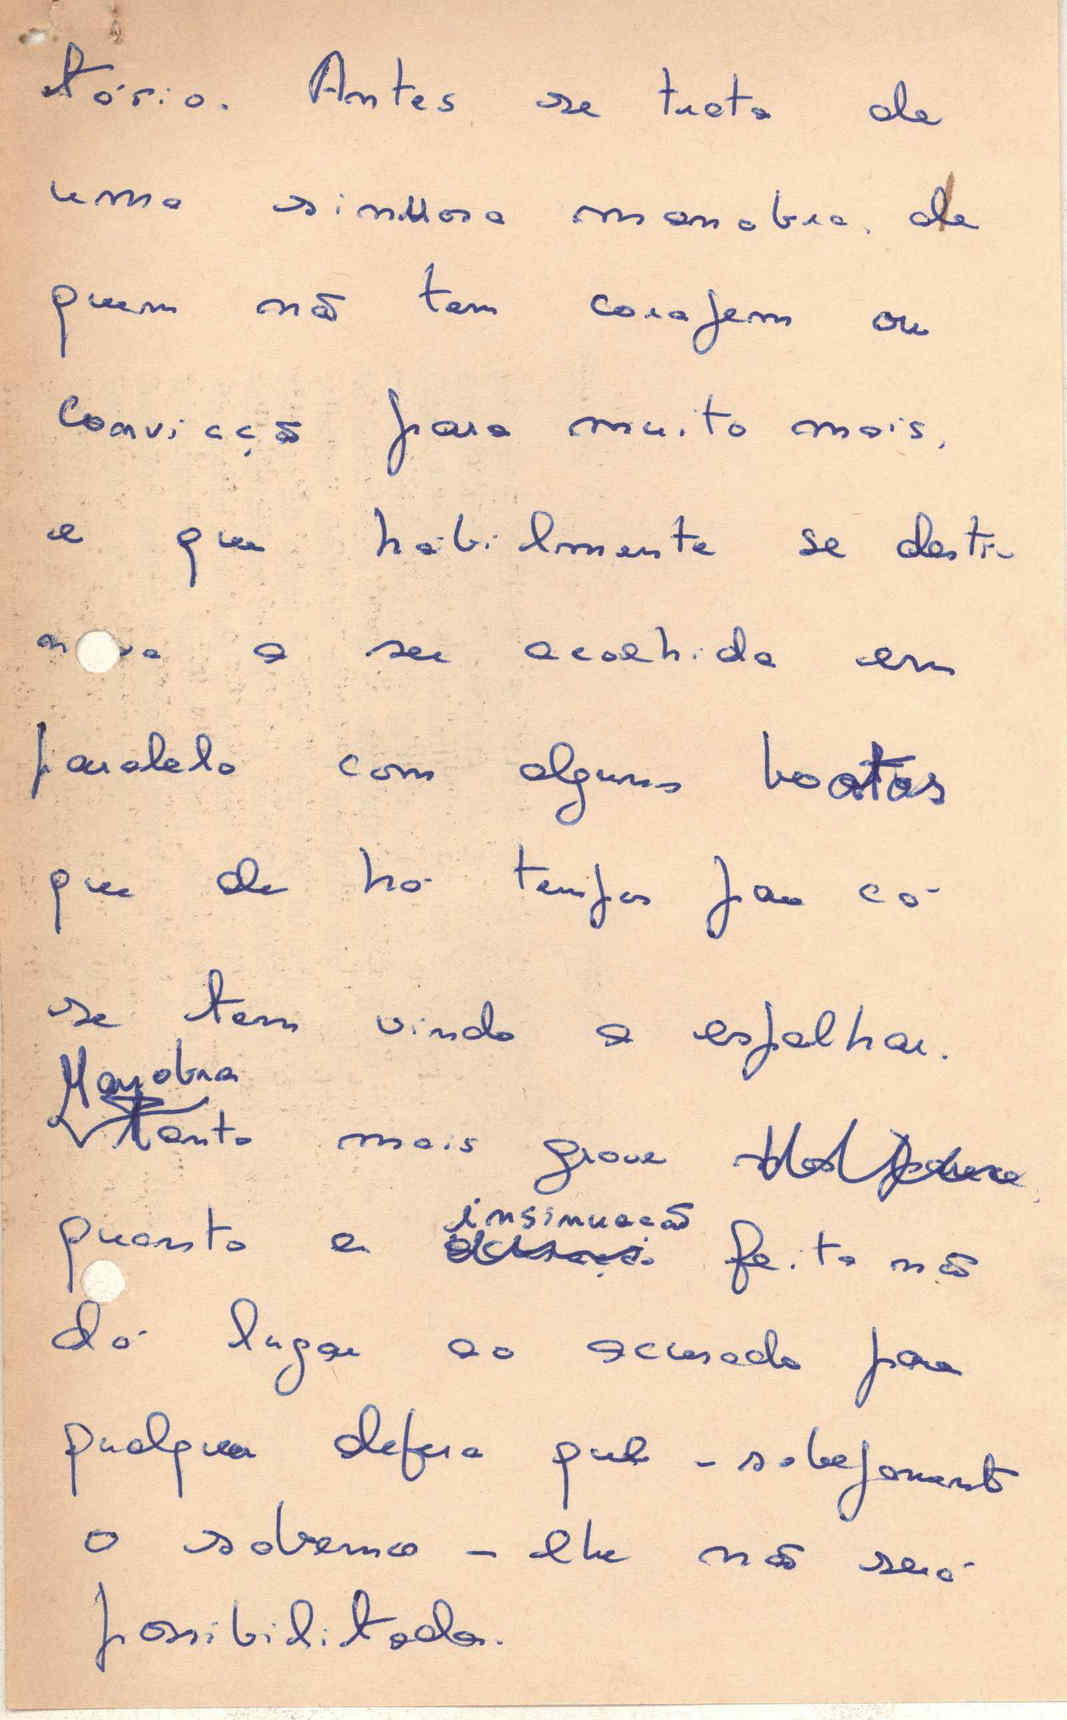 tório. Antes se trata de
uma sinuosa manobra, de
quem não tem coragem ou
convicção para muito mais,
e que hábilmente se desti-
nava a ser acolhida em
paralelo com alguns boatos
que de há tempos para cá
se tem vindo a espalhar.
Manobra
tanto mais grave
insinuação
quanto a feita não
dá lugar ao acusado para
qualquer defesa que - sobejamente
o sabemos - lhe não será
possibilitada.